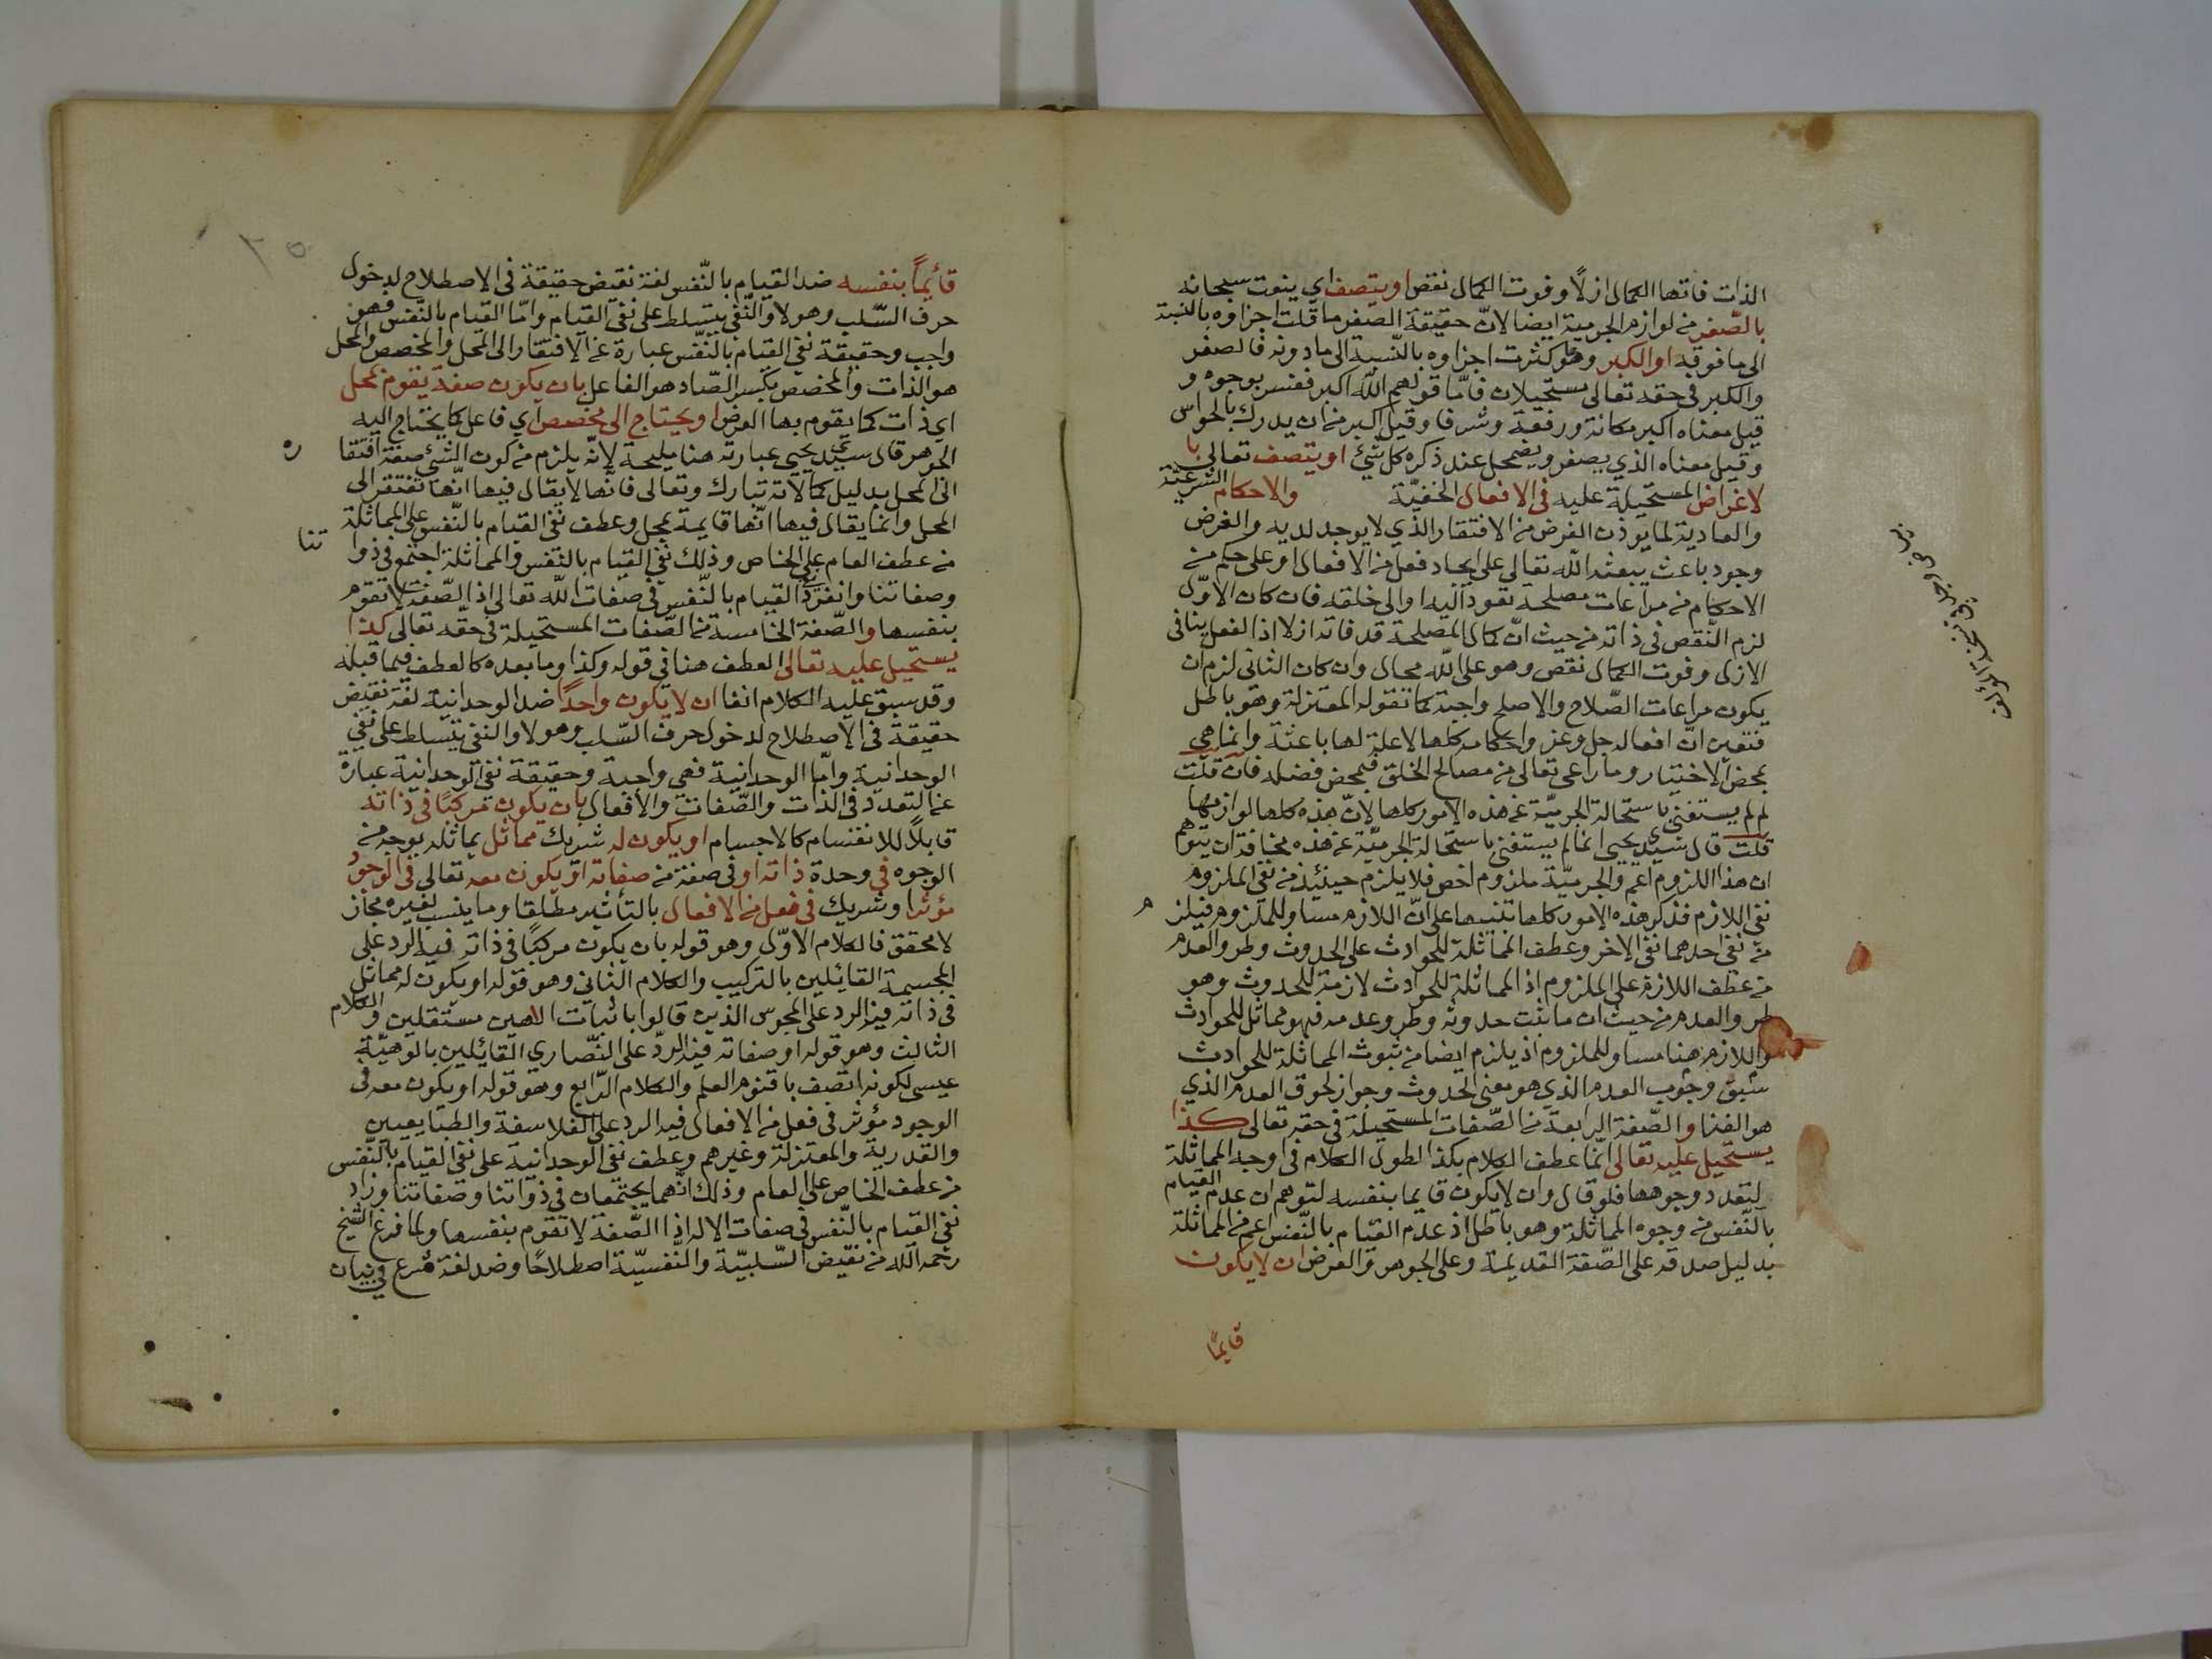 الذات فاتها الكمال ازلاً وفوت الكمال نقص او يتصف اي ينعت سبحانه
بالصّغر من لوازم الجرمية ايضا لانّ حقيقة الصغر ما قلت اجزاوه بالنسبة
الى ما فوقه او الكبر وهو ما كثرت اجزاوه بالنّسبة الى ما دونه فالصغر
والكبر في حقه تعالى مستحيلان فامّا قولهم الله اكبر ففسر بوجوه و
قيل معناه اكبر مكانة ورفعة وشرفا وقيل اكبر من ان يدرك بالحواس
وقيل معناه الذي يصغر ويضمحل عند ذكره كل شئ او يتصف تعالى با
لاغراض المستحيلة عليه في الافعال الخفيّة والاحكام الشرعيّة
والعادية لما يوذن الغرض من الافتقار الذي لا يوجد لديه والغرض
وجود باعث يبعثه الله تعالى على ايجاد فعل من الافعال او على حكم من
الاحكام من مراعات مصلحة تعود اليه او الى خلقه فان كان الاوّل
لزم النّقص في ذاته من حيث انّ كمال المصلحة قد فاته ازلا اذ الفعل ينافي
الازل وفوت الكمال نقص وهو على الله محال وان كان الثاني لزم ان
يكون مراعات الصّلاح والاصلح واجبة كما تقوله المعتزلة وهو باطل
فتعين انّ افعاله جل وعز واحكامه كلها لا علة لها باعثة وانما هي
بمحض الاختيار وما راعى تعالى من مصالح الخلق فبمحض فضله فان قلت
لم لم يستغني باستحالة الجرميّة عن هذه الامور كلها لانّ هذه كلها لوازمها
قلت قال سيدي يحيى انما لم يستغني باستحالة الجرميّة عن هذه مخافة ان يتوهم
ان هذا اللزوم اعم والجرميّة ملزوم اخص فلا يلزم حينئذ من نفي الملزوم
نفي اللازم فذكر هذه الامور كلها تنبيها على انّ اللازم مساو للملزوم فيلز م
من نفي احدهما نفي الاخر وعطف المماثلة للحوادث على الحدوث وطرو العدم
من عطف اللازم على الملزوم اذ المماثلة للحوادث لازمة للحدوث وهو
طرو العدم من حيث ان ما ثبت حدوثه وطرو عدمه فهو مماثل للحوادث
واللازم هنا مساو للملزوم اذ يلزم ايضا من ثبوت المماثلة للحوادث
سبق وجوب العدم الذي هو معنى الحدوث وجواز لحوق العدم الذي
هو الفنا والصّفة الرابعة من الصّفات المستحيلة في حقه تعالى كذا
يستحيل عليه تعالى انّما عطف الكلام بكذا لطول الكلام في اوجه المماثلة
لتعدد وجوهها فلو قال وان لا يكون قايما بنفسه لتوهم ان عدم القيام
بالنّفس من وجوه المماثلة وهو باطل اذ عدم القيام بالنّفس اعم من المماثلة
بدليل صدقه على الصّفة القديمة وعلى الجوهر والعرض ان لا يكون
قايمًا
قائمًا بنفسه ضد القيام بالنّفس لغة نقيض حقيقة في الاصطلاح لدخول
حرف السّلب وهو لا والنّفي يتسلط على نفي القيام وامّا القيام بالنّفس فهو
واجب وحقيقة نفي القيام بالنّفس عبارة عن الافتقار الى المحل والمخصص والمحل
هو الذات والمخصص بكسر الصّاد هو الفاعل بان يكون صفة يقوم بمحل
اي ذات كما يقوم بها العرض او يحتاج الى مخصص اي فاعل كما يحتاج اليه
الجوهر قال سيدي يحيى عبارته هنا مليحة لانّه يلزم من كون الشئ صفة افتقا ره
الى المحل بدليل كمالاته تبارك وتعالى فانّها لا يقال فيها انّها تفتقر الى
المحل وانما يقال فيها انّها قايمة بمحل وعطف نفي القيام بالنّفس على المماثلة
من عطف العام على الخاص وذلك نفي القيام بالنّفس والمماثلة اجتمع في ذوا تنا
وصفاتنا وانفرد القيام بالنّفس في صفات الله تعالى اذ الصّفة لا تقوم
بنفسها والصّفة الخامسة من الصّفات المستحيلة في حقّه تعالى كذا
يستحيل عليه تعالى العطف هنا في قوله وكذا وما بعده كالعطف فيما قبله
وقد سبق عليه الكلام انفا ان لا يكون واحدًا ضد الوحدانية لغة نقيض
حقيقة في الاصطلاح لدخول حرف السّلب وهو لا والنفي يتسلط على نفي
الوحدانية وامّا الوحدانية فهي واجبة وحقيقة نفي الوحدانية عبارة
عن التعدد في الذات والصّفات والافعال بان يكون مركبًا في ذاته
قابلاً للانقسام كالاجسام او يكون له شريك مماثل يماثله بوجه من
الوجوه في وحدة ذاته او في صفة من صفاته او يكون معه تعالى في الوجود
مؤثرا وشريك في فعل من الافعال بالتأثير مطلقا وما ينسب لغيره مجاز
لا محقق فالكلام الاوّل وهو قوله بان يكون مركبًا في ذاته فيه الرد على
المجسمة القائلين بالتركيب والكلام الثاني وهو قوله او يكون له مماثل
في ذاته فيه الرد على المجوس الذين قالوا باثبات الاهين مستقلين والكلام
الثالث وهو قوله او صفاته فيه الردّ على النّصارى القائلين بالوهيّة
عيسى لكونه اتصف باقنوم العلم والكلام الرّابع وهو قوله او يكون معه في
الوجود مؤثر في فعل من الافعال فيه الرد على الفلاسفة والطبايعيين
والقدرية والمعتزلة وغيرهم وعطف نفي الوحدانية على نفي القيام بالنّفس
من عطف الخاص على العام وذلك انّهما يجتمعان في ذواتنا وصفاتنا وزاد
نفي القيام بالنّفس في صفات الاله اذ الصّفة لا تقوم بنفسها ولما فرغ الشيخ
رحمه الله من نقيض السّلبيّة والنّفسيّة اصطلاحًا وضد لغة شرع في بيان